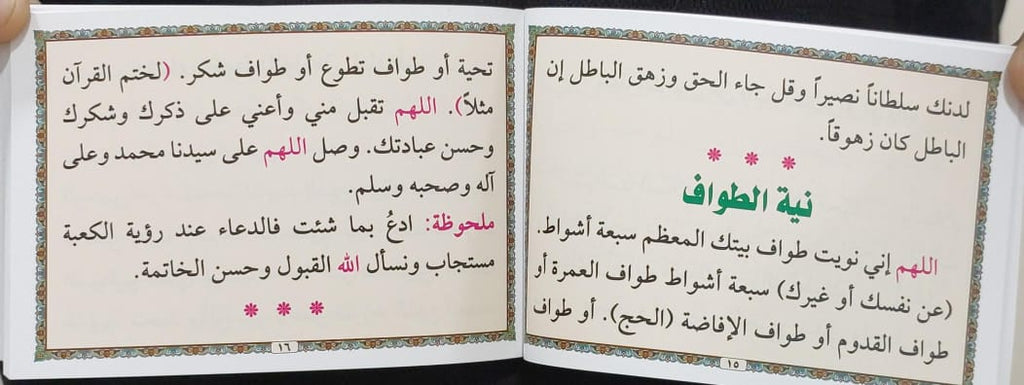 لدنك سلطاناً نصيراً وقل جاء الحق وزهق الباطل إن
الباطل كان زهوقاً.
* * *
نية الطواف
اللهم إني نويت طواف بيتك المعظم سبعة أشواط.
(عن نفسك أو غيرك) سبعة أشواط طواف العمرة أو
طواف القدوم أو طواف الإفاضة (الحج). أو طواف
١٥
تحية أو طواف تطوع أو طواف شكر. (لختم القرآن
مثلاً). اللهم تقبل مني وأعني على ذكرك وشكرك
وحسن عبادتك. وصل اللهم على سيدنا محمد وعلى
آله وصحبه وسلم.
ملحوظة: ادعُ بما شئت فالدعاء عند رؤية الكعبة
مستجاب ونسأل الله القبول وحسن الخاتمة.
* * *
١٦